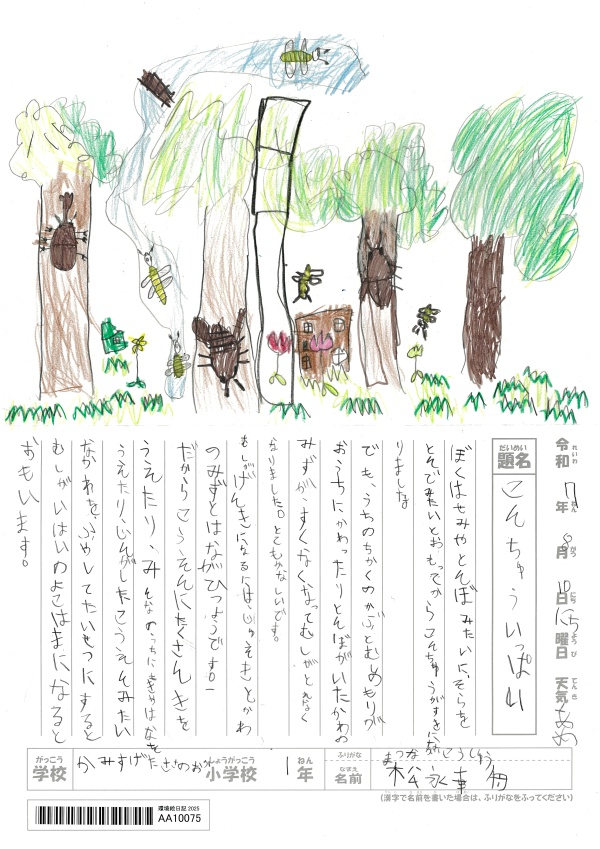 令和 7年 8月 10日 にち曜日 天気 あめ
れいわ ねん がつ にち ようび てんき
だいめい
題名 こんちゅういっぱい
ぼくはせみやとんぼみたいに、そらを
とんでみたいとおもってからこんちゅうがすきにな
りました。
でも、うちのちかくのかぶとむしのもりが
おうちにかわったりとんぼがいたかわの
みずが、すくなくなってむしがとれなく
なりました。とてもかなしいです。
むしがげんきになるには、じゅえきとかわ
のみずとはながひつようです。
だからこうえんにたくさんきを
うえたり、みんなのうちにきやはなを
うえたり、じんがしたこうえんみたい
ながれをふやしてたいせつにすると
むしがいっぱいのよこはまになると
おもいます。
がっこう
学校 かみすげたささのおか 小学校 1年
しょうがっこう ねん
ふりがな まつなが こうしゅう
なまえ
名前 松永
(漢字で名前を書いた場合は、ふりがなをふってください)
環境絵日記2025
AA10075